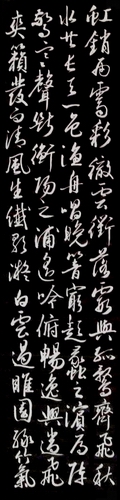 虹銷雨霽彩徹雲衢落霞與孤鶩齊飛秋
水共長天一色漁舟唱晚響窮彭蠡之濱雁陣
驚寒聲斷衡陽之浦遙吟俯暢逸興遄飛
爽籟發而清風生纖歌凝白雲遏睢園綠竹氣